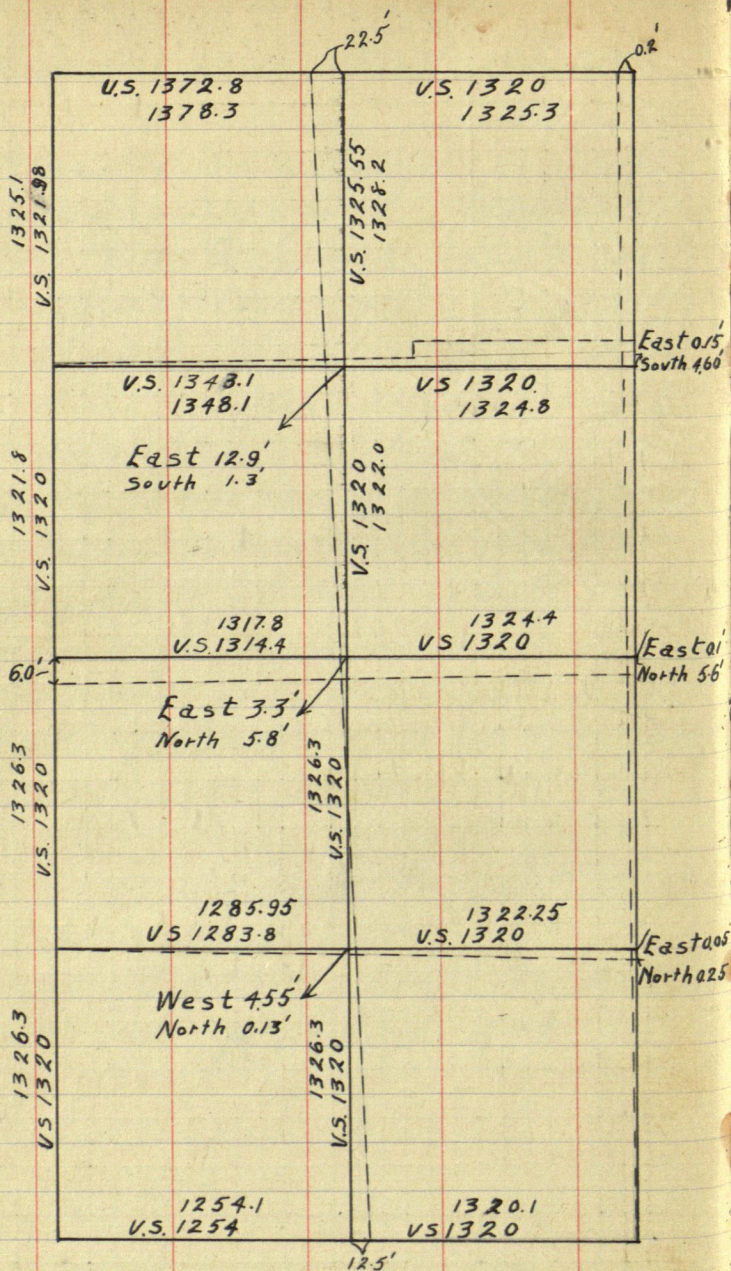 22.5'
0.2'
U.S. 1372.8
1378.3
U.S. 1320
1325.3
1325.1
U.S. 1321.98
U.S. 1325.55
1328.2
East 0.15'
South 4.60'
U.S. 1343.1
1348.1
US 1320
1324.8
East 12.9'
South 1.3'
1321.8
U.S. 1320
U.S. 1320
1322.0
1317.8
U.S. 1314.4
1324.4
US 1320
East 0.1'
North 5.6'
6.0'
East 3.3'
North 5.8'
1326.3
U.S. 1320
1326.3
U.S. 1320
1285.95
US 1283.8
1322.25
U.S. 1320
East 0.05'
North 0.25
West 4.55'
North 0.13'
1326.3
US 1320
1326.3
U.S. 1320
1254.1
U.S. 1254
1320.1
US 1320
12.5'